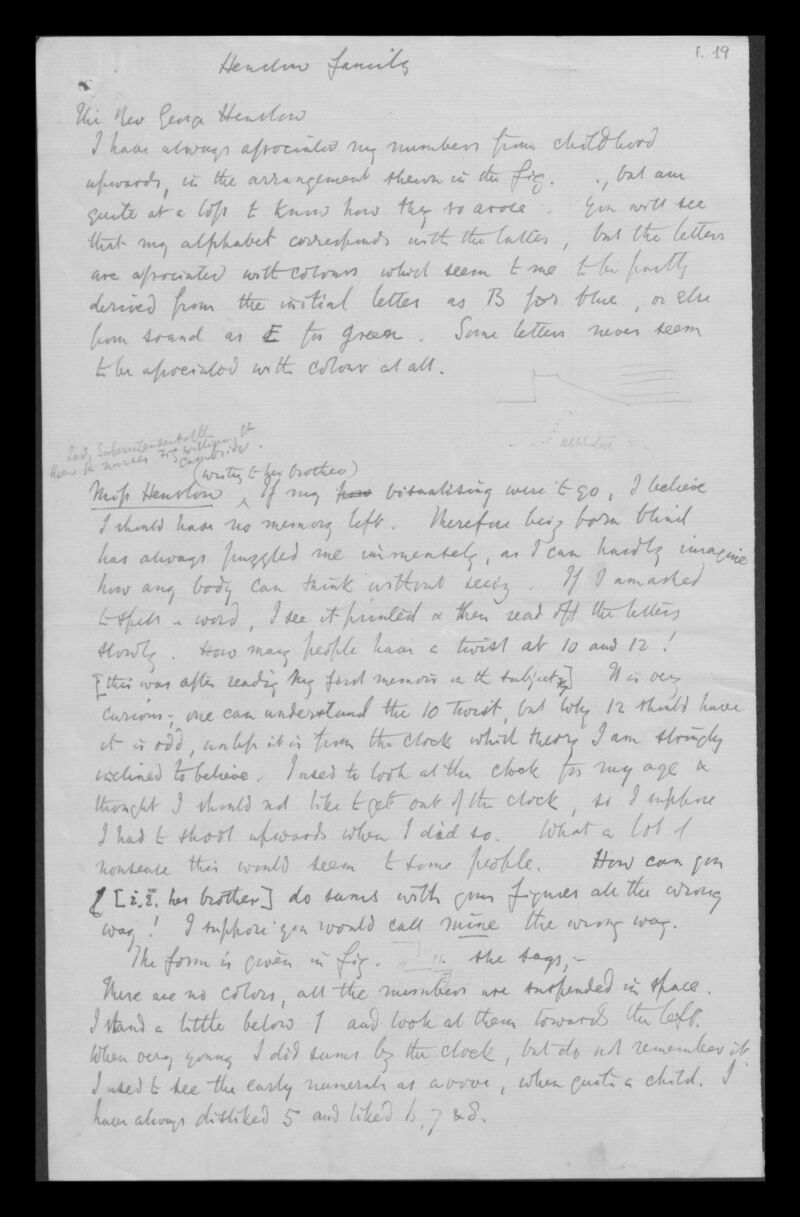 f. 19
Henslow Family
The Rev George Henslow
I have always associated my numbers from childhood
upwards, in the arrangement shewn in the fig. ., but am
quite at a loss to know how they so arose. You will see
that my alphabet corresponds with the latter, but the letters
are associated with colours which seem to me to be partly
derived from the initial letter as B for blue, or else
from sound as E for green. Some letters never seem
to be associated with colour at all.
alphabet
Lady Superintendent of the
Home for nurses
Cambridge.
(writing to her brother)
Miss Henslow If my power visualising were to go, I believe
I should have no memory left. Therefore being born blind
has always puzzled me immensely, as I can hardly imagine
how any body can think without seeing. If I am asked
to spell a word, I see it printed & then read off the letters
slowly. How many people have a twist at 10 and 12!
[this was after reading my first memoir on the subject] It is very
curious; one can understand the 10 twist, but why 12 should have
it is odd, unless it is from the clock which theory I am strongly
inclined to believe. I used to look at the clock for my age &
thought I should not like to get out of the clock, so I suppose
I had to shoot upwards when I did so. What a lot of
nonsense this would seem to some people. How can you
[i.e. her brother] do sums with your figures all the wrong
way! I suppose you would call mine the wrong way.
The form is given in fig. 11. she says,-
There are no colors, all the numbers are suspended in space.
I stand a little below 1 and look at them towards the left.
When very young I did sums by the clock, but do not remember it
I used to see the early numerals as above, when quite a child. I
have always disliked 5 and liked 6, 7 & 8.